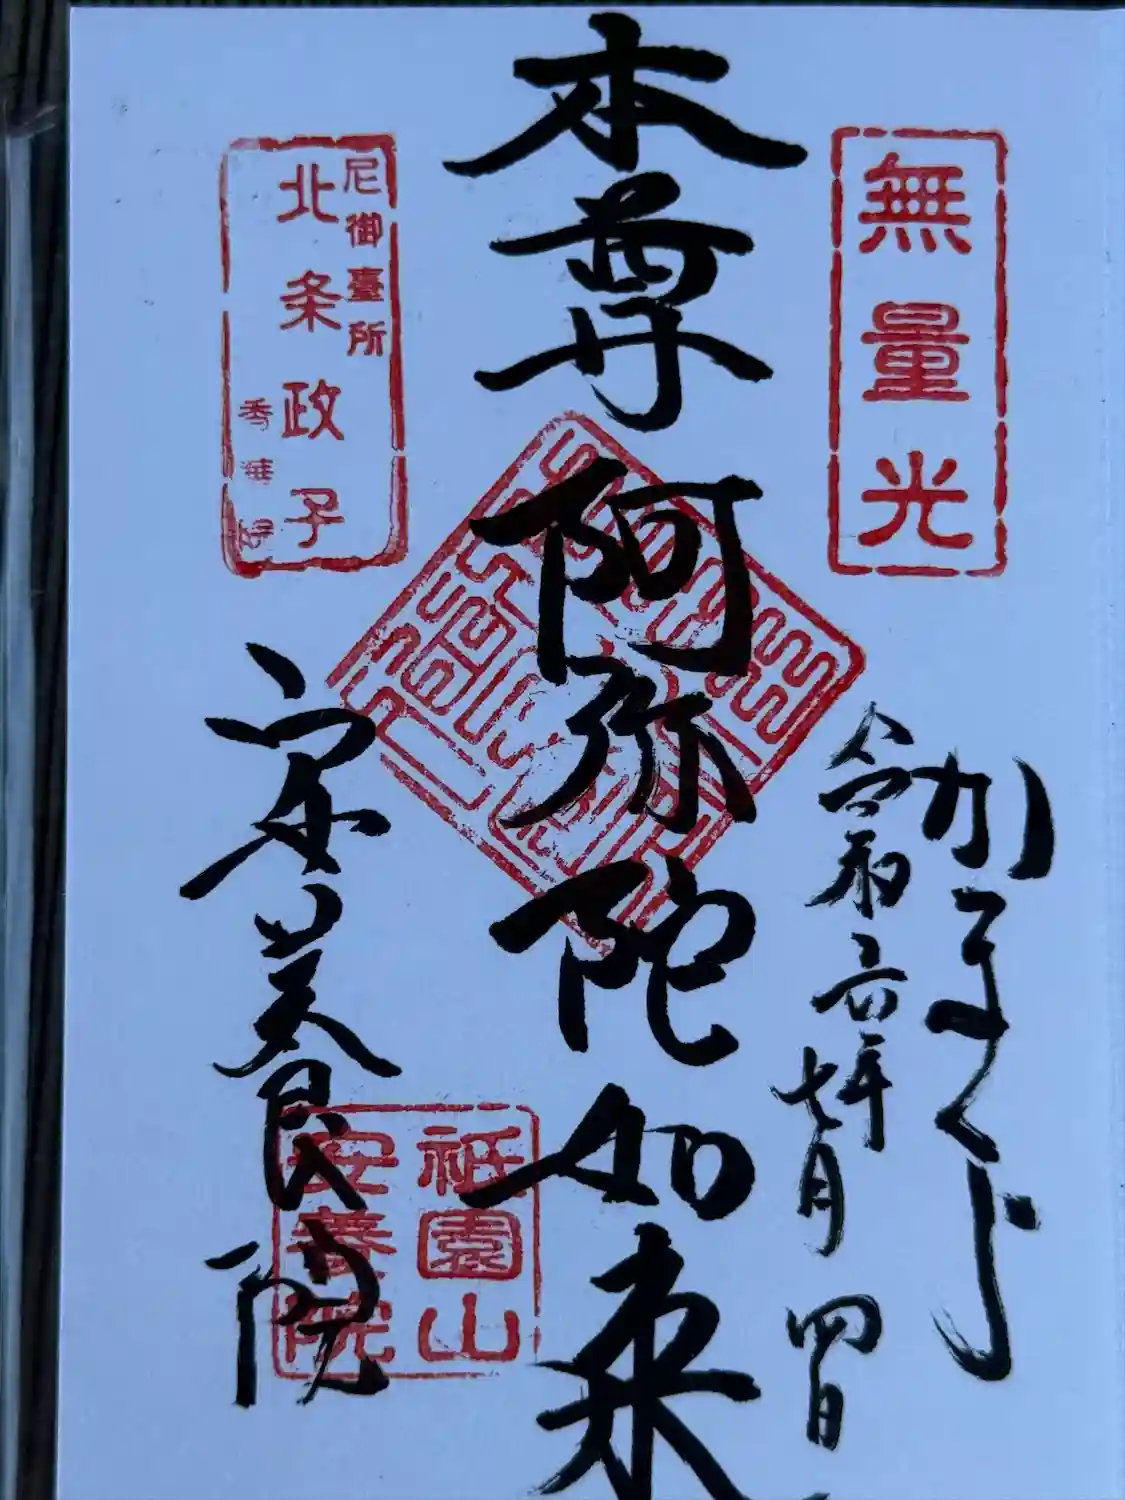 無量光
かまくら
令和六年七月四日
本尊阿弥陀如来
尼御臺所
北条政子
安養院
祇園山
安養院